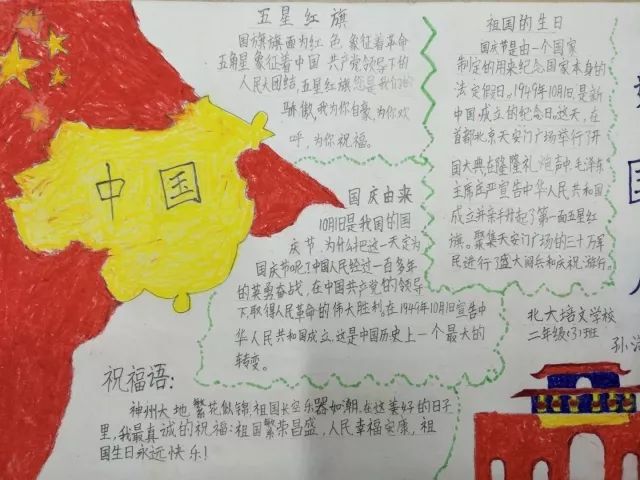 五星红旗
国旗旗面为红色象征着革命
五角星象征着中国共产党领导下的
人民大团结,五星红旗您是我们的
骄傲,我为你自豪,为你欢
呼,为你祝福。
祖国的生日
国庆节是由一个国家
制定的用来纪念国家本身的
法定假日,1949年10月1日是新
中国成立的纪念日。这天,在
首都北京天安门广场举行了开
国大典,在隆隆礼炮声中,毛泽东
主席庄严宣告中华人民共和国
成立并亲手升起了第一面五星红
旗。聚集天安门广场的三十万军
民进行了盛大阅兵和庆祝游行。
中国
国庆由来
10月1日是我国的国
庆节,为什么把这一天定为
国庆节呢?中国人民经过一百多年
的英勇奋战,在中国共产党的领导
下,取得人民革命的伟大胜利。在1949年10月1日宣告中
华人民共和国成立,这是中国历史上一个最大的
转变。
北大培文学校
二年级(3)班
孙
祝福语:
神州大地繁花似锦,祖国长空乐器如潮,在这美好的日子
里,我最真诚的祝福:祖国繁荣昌盛,人民幸福安康,祖
国生日永远快乐!
国